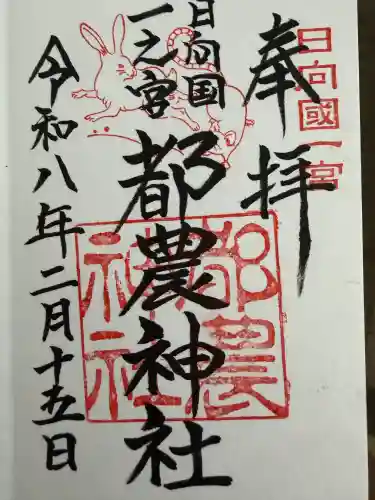 日向國一宮
奉拝
日向国
一之宮
都農神社
都農
神社
令和八年二月十五日